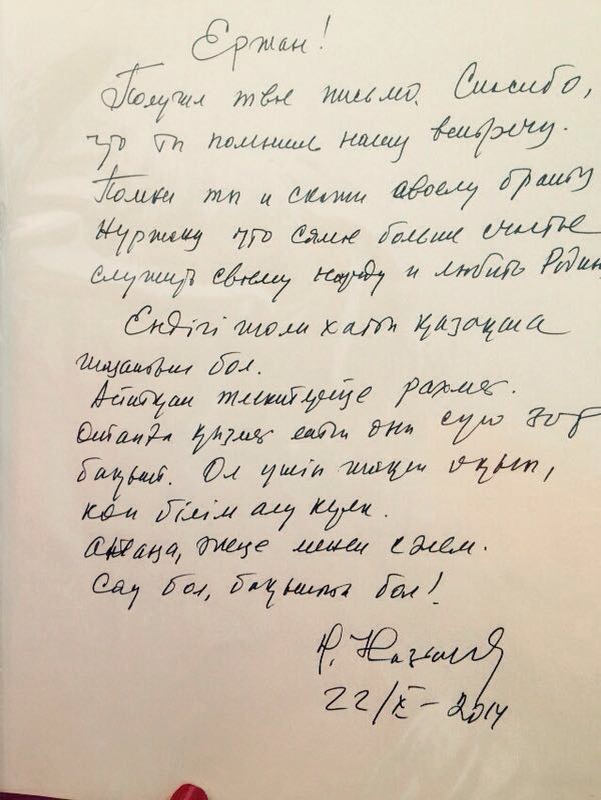 Ержан!
Получил твое письмо. Спасибо,
что ты помнишь нашу встречу.
Помни ты и скажи своему братку
Нуржану что самое больше счастье
служить своему народу и любить Родину
Ендігі жолы хатты қазақша
жазатын бол.
Айтқан тілектеріңе рахмет.
Отанға қызмет етіп оны сүю зор
бақыт. Ол үшін жақсы оқып,
көп білім алу керек.
Атаңа, әжеңе менен сәлем.
Сау бол, бақытты бол!
Н. Назарбаев
22/X – 2014